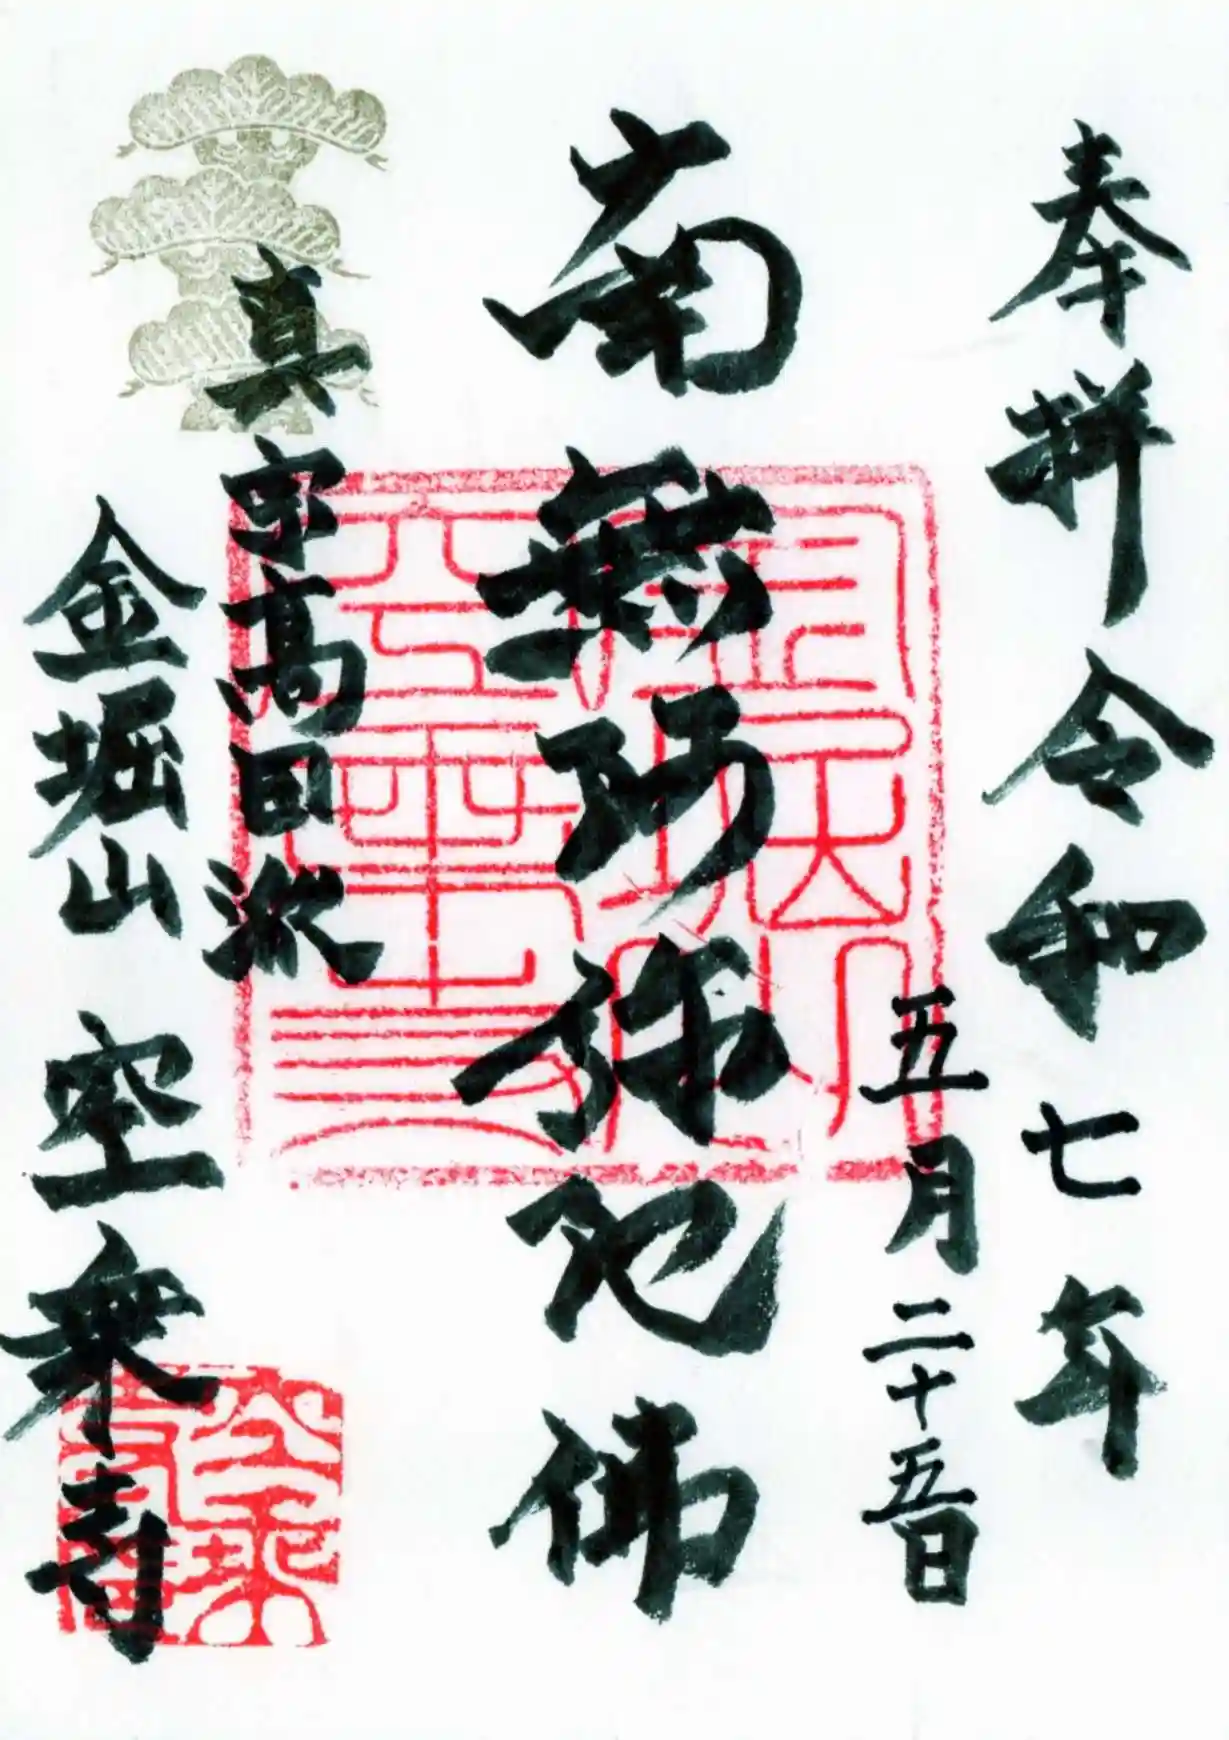 奉拝 令和七年
五月二十五日
南無阿弥陀佛
真宗高田派
金堀山 空乗寺